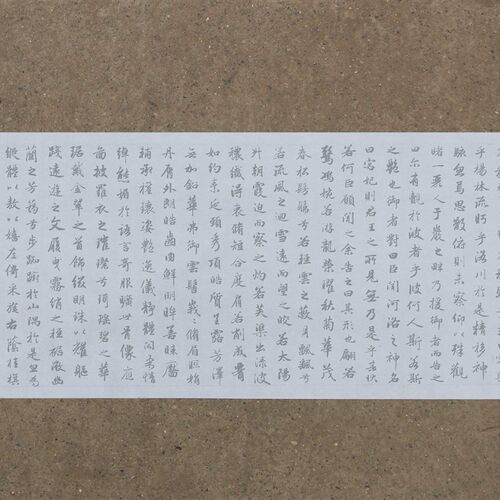 乎楊林流眄乎洛川於是精移神
駭忽焉思散俯則未察仰以殊觀
睹一麗人于巖之畔乃援御者而告之
曰尔有覿於彼者乎彼何人斯若斯
之艷也御者對曰臣聞河洛之神名
曰宓妃則君王之所見無乃是乎其狀
若何臣願聞之余告之曰其形也翩若
驚鴻婉若游龍榮曜秋菊華茂
春松髣髴兮若輕雲之蔽月飄飄兮
若流風之迴雪遠而望之皎若太陽
升朝霞迫而察之灼若芙蕖出淥波
穠纖得衷脩短合度肩若削成腰
如約素延頸秀項皓質呈露芳澤
無加鉛華弗御雲髻峩峩脩眉聯娟
丹脣外朗皓齒內鮮明眸善睞靨
輔承權瓌姿艷逸儀靜體閑柔情
綽態媚於語言奇服曠世骨像應
圖披羅衣之璀璨兮珥瑤碧之華
琚戴金翠之首飾綴明珠以耀軀
踐遠遊之文履曳霧綃之輕裾微幽
蘭之芳藹兮步踟躕於山隅於是忽焉
縱體以敖以嬉左倚采旄右蔭桂旗